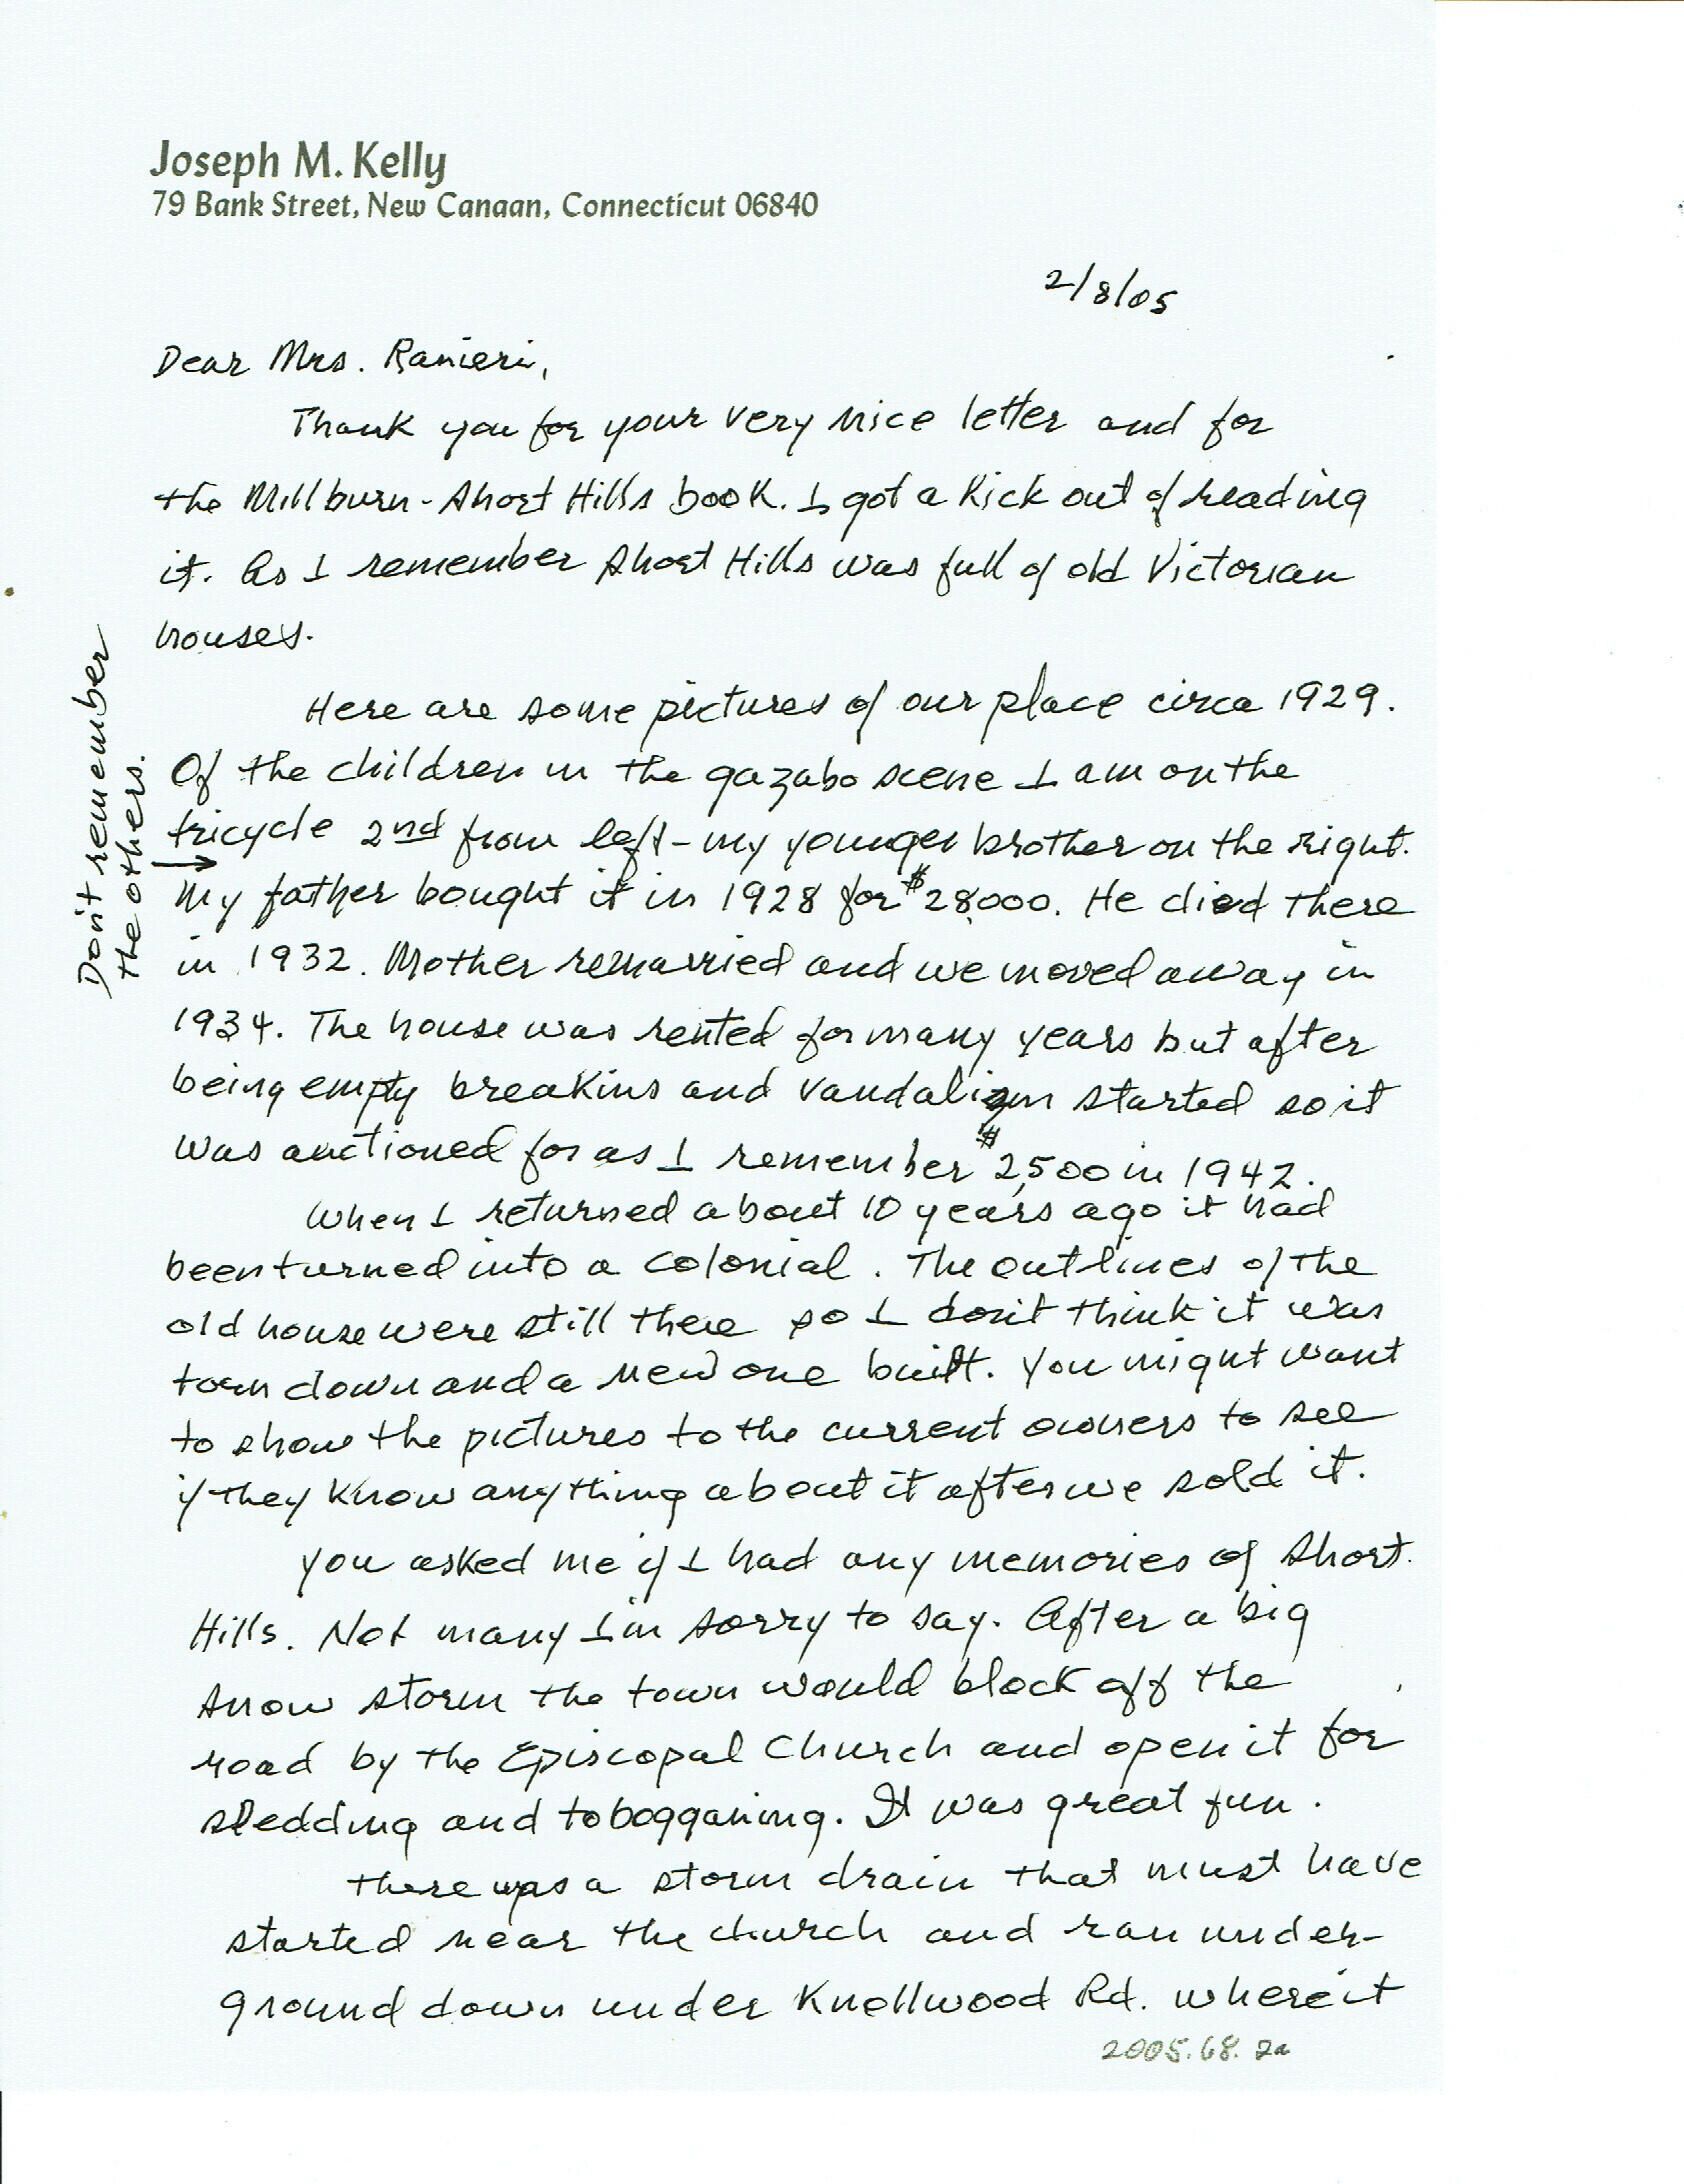 Joseph M. Kelly
79 Bank Street, New Canaan, Connecticut 06840
2/8/05
Dear Mrs. Ranieri,
Thank you for your very nice letter and for
the Millburn-Short Hills book. I got a kick out of reading
it. As I remember Short Hills was full of old Victorian
houses.
Here are some pictures of our place circa 1929.
Of the children in the gazabo scene I am on the
tricycle 2nd from left - my younger brother on the right.
Don't remember
the others.
My father bought it in 1928 for $28,000. He died there
in 1932. Mother remarried and we moved away in
1934. The house was rented for many years but after
being empty breakins and vandalizm started so it
was auctioned for as I remember $2,500 in 1942.
When I returned about 10 years ago it had
been turned into a colonial. The outlines of the
old house were still there so I don't think it was
torn down and a new one built. You might want
to show the pictures to the current owners to see
if they know anything about it after we sold it.
You asked me if I had any memories of Short
Hills. Not many I'm sorry to say. After a big
snow storm the town would block off the
road by the Episcopal Church and open it for
sledding and tobogganing. It was great fun.
There was a storm drain that must have
started near the church and ran under-
ground down under Knollwood Rd. where it
2005.68.2a